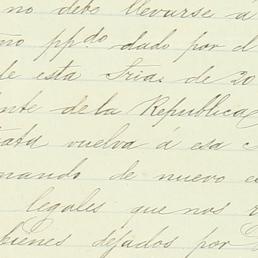 no debo llevarse á
ño ppdo dado por el
de esta Frias de 20
nte de la Republica
vuelva á esa
mando de nuevo
legales que nos
bienes dejados por